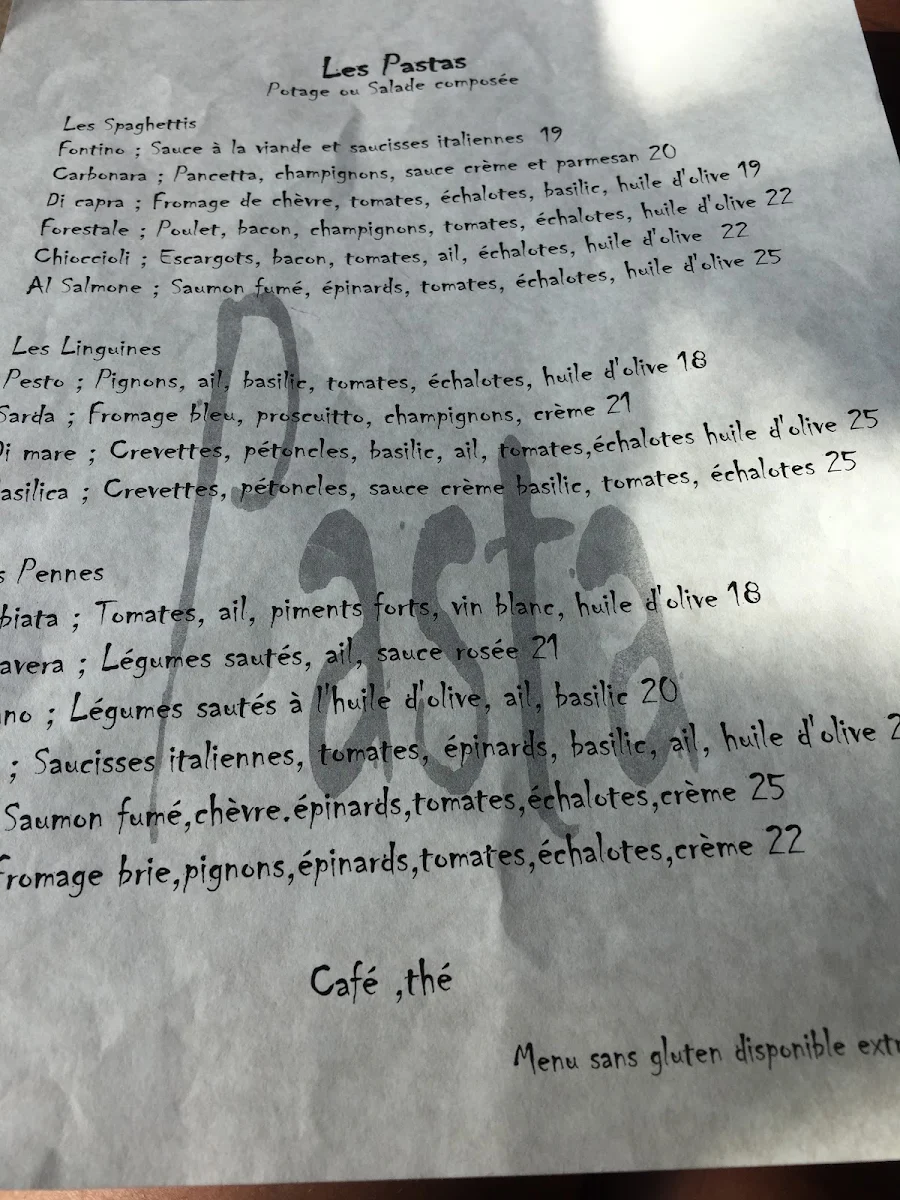 Les Pastas
Potage ou Salade composée
Les Spaghettis
Fontino ; Sauce à la viande et saucisses italiennes 19
Carbonara ; Pancetta, champignons, sauce crème et parmesan 20
Di capra ; Fromage de chèvre, tomates, échalotes, basilic, huile d'olive 19
Forestale ; Poulet, bacon, champignons, tomates, échalotes, huile d'olive 22
Chioccioli ; Escargots, bacon, tomates, ail, échalotes, huile d'olive 22
Al Salmone ; Saumon fumé, épinards, tomates, échalotes, huile d'olive 25
Les Linguines
Pesto ; Pignons, ail, basilic, tomates, échalotes, huile d'olive 18
Sarda ; Fromage bleu, proscuitto, champignons, crème 21
Di mare ; Crevettes, pétoncles, basilic, ail, tomates,échalotes huile d'olive 25
asilica ; Crevettes, pétoncles, sauce crème basilic, tomates, échalotes 25
s Pennes
biata ; Tomates, ail, piments forts, vin blanc, huile d'olive 18
avera ; Légumes sautés, ail, sauce rosée 21
no ; Légumes sautés à l'huile d'olive, ail, basilic 20
; Saucisses italiennes, tomates, épinards, basilic, ail, huile d'olive 2
Saumon fumé,chèvre.épinards,tomates,échalotes,crème 25
Fromage brie,pignons,épinards,tomates,échalotes,crème 22
Pasta
Café ,thé
Menu sans gluten disponible extr